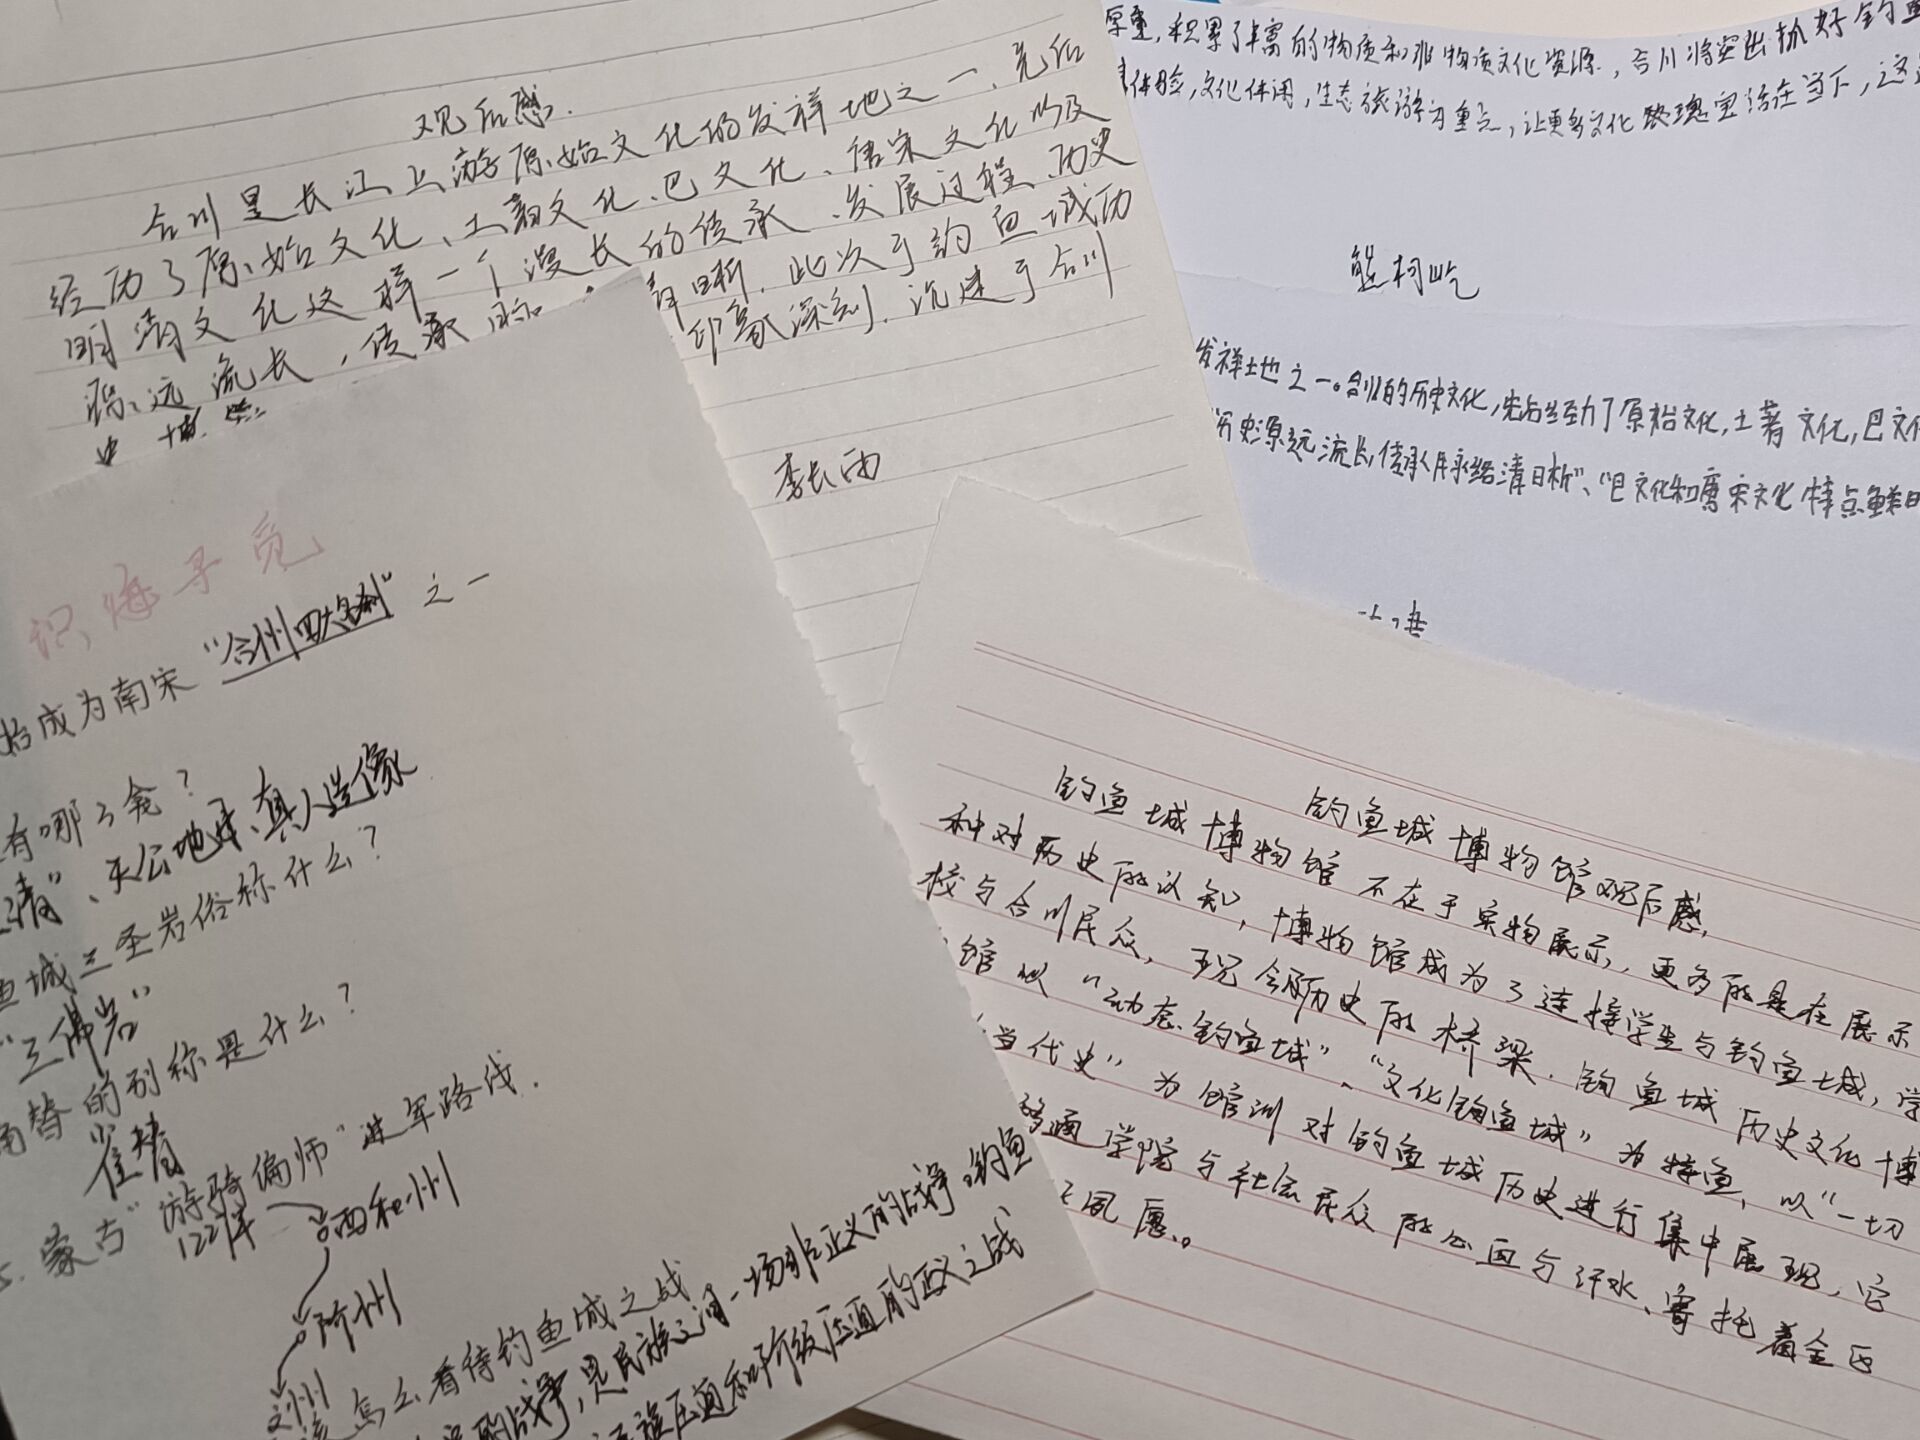 观后感.
合川是长江上游原始文化的发祥地之一、先后
经历了原始文化、土著文化、巴文化、唐宋文化以及
明清文化这样一个漫长的传承、发展过程、历史
源远流长，传承脉 清晰. 此次于钓鱼城历
史博览 印象深刻. 沉迷于合川
李长雨
厚重，积累了丰富的物质和非物质文化资源，合川将突出抓好钓鱼
体验，文化休闲，生态旅游为重点，让更多文化瑰宝活在当下，这
熊柯屹
发祥土地之一。合川的历史文化，先后经历了原始文化，土著文化，巴文化
历史源远流长，传承脉络清晰”、“巴文化和唐宋文化特点鲜明
识海寻觅
始成为南宋“合州四大名刹”之一
有哪3龛？
清”、天公地母、真人造像
鱼城三圣岩俗称什么？
“三佛岩”
的别称是什么？
5. 蒙古“游骑偏师”进军路线.
西和州
阶州
文州
怎么看待钓鱼城之战
的战争，是民族之间一场非正义的战争。钓鱼
族压迫和阶级压迫的正义之战
钓鱼城博物馆观后感.
钓鱼城博物馆不在于实物展示，更多的是在展示
种对历史的认知，博物馆成为了连接学生与钓鱼城，学
校与合川民众，现今历史的桥梁. 钓鱼城历史文化博
馆以“动态钓鱼城”、“文化钓鱼城”为特色，以“一切
当代史”为馆训对钓鱼城历史进行集中展现，它
学院与社会民众的心血与汗水、寄托着全民
夙愿。